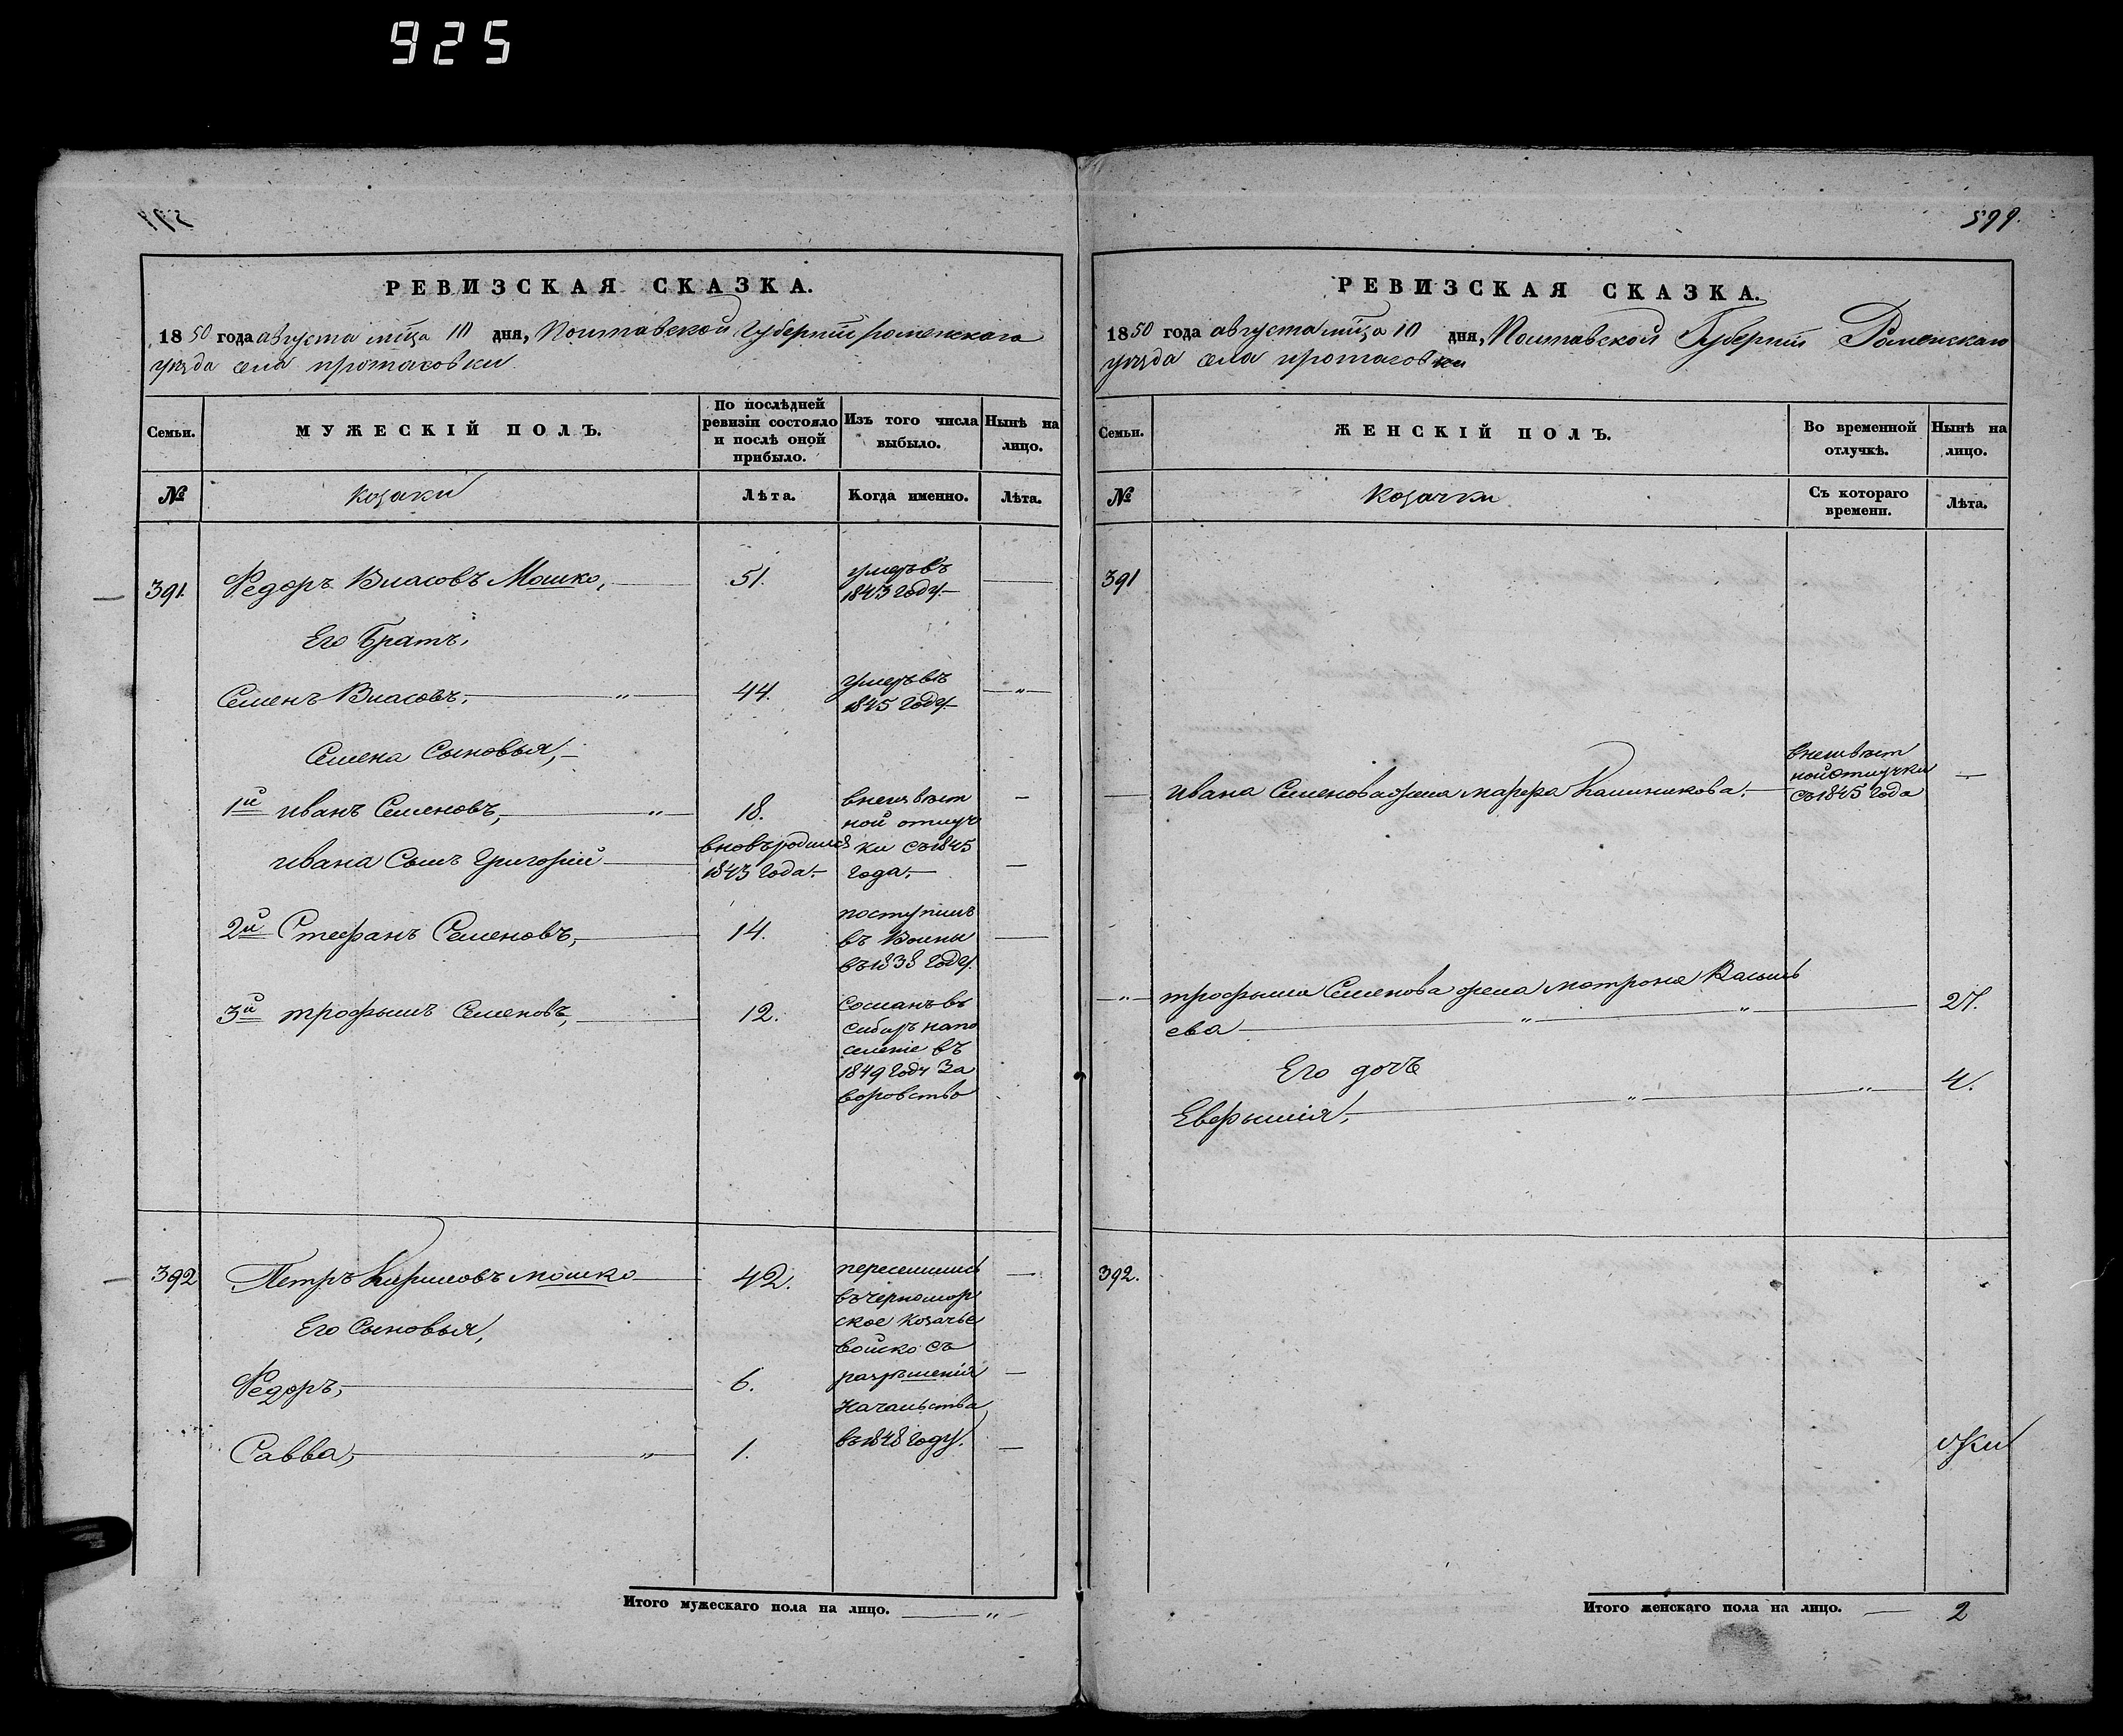 925
599.
РЕВИЗСКАЯ СКАЗКА.
1850 года августа мца 10 дня, Полтавской Губерніи роменскаго
уѣзда села протасовки
Семьи.
МУЖЕСКІЙ ПОЛЪ.
По послѣдней ревизіи состояло и послѣ оной прибыло.
Изъ того числа выбыло.
Нынѣ на лицо.
№
козаки
Лѣта.
Когда именно.
Лѣта.
391. Федоръ Власовъ Мошко, 51. умеръ въ 1843 году.
Его Братъ,
Семенъ Власовъ, 44. умеръ въ 1845 году
Семена Сыновья,
1й иванъ Семеновъ, 18. внеизвѣст
ной отлуч
ивана Сынъ Григорій вновь родился ки съ 1845
1843 года. года.
2й Стефанъ Семеновъ, 14. поступилъ
въ Воины
въ 1838 году.
3й трофымъ Семеновъ, 12. Сосланъ въ
сибирь напо
селеніе въ
1849 году За
воровство
392 Петръ Кириловъ мошко 42. переселились
въ Черномор
Его Сыновья, ское козачье
войско съ
Федоръ, 6. разрѣшенія
Начальства
Савва, 1. въ 1848 году.
Итого мужескаго пола на лицо. — „ —
РЕВИЗСКАЯ СКАЗКА.
1850 года августа мца 10 дня, Полтавской Губерніи Роменскаго
уѣзда села протасовки
Семьи.
ЖЕНСКІЙ ПОЛЪ.
Во временной отлучкѣ.
Нынѣ на лицо.
№
козачки
Съ котораго времени.
Лѣта.
391
внеизвѣст
ной отлучки
ивана Семенова жена марфа Калиникова. съ 1845 года
трофыма Семенова жена мотрона Василь
ева 27.
Его дочь
Евфымія, 4.
392.
Итого женскаго пола на лицо. — 2